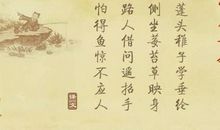 蓬头稚子学垂纶
侧坐莓苔草映身
路人借问遥招手
怕得鱼惊不应人
译文